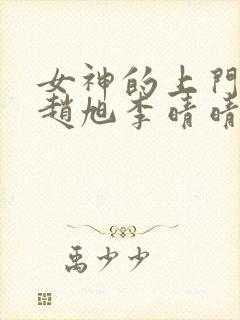 女神的上門
趙旭李晴晴
禹少少